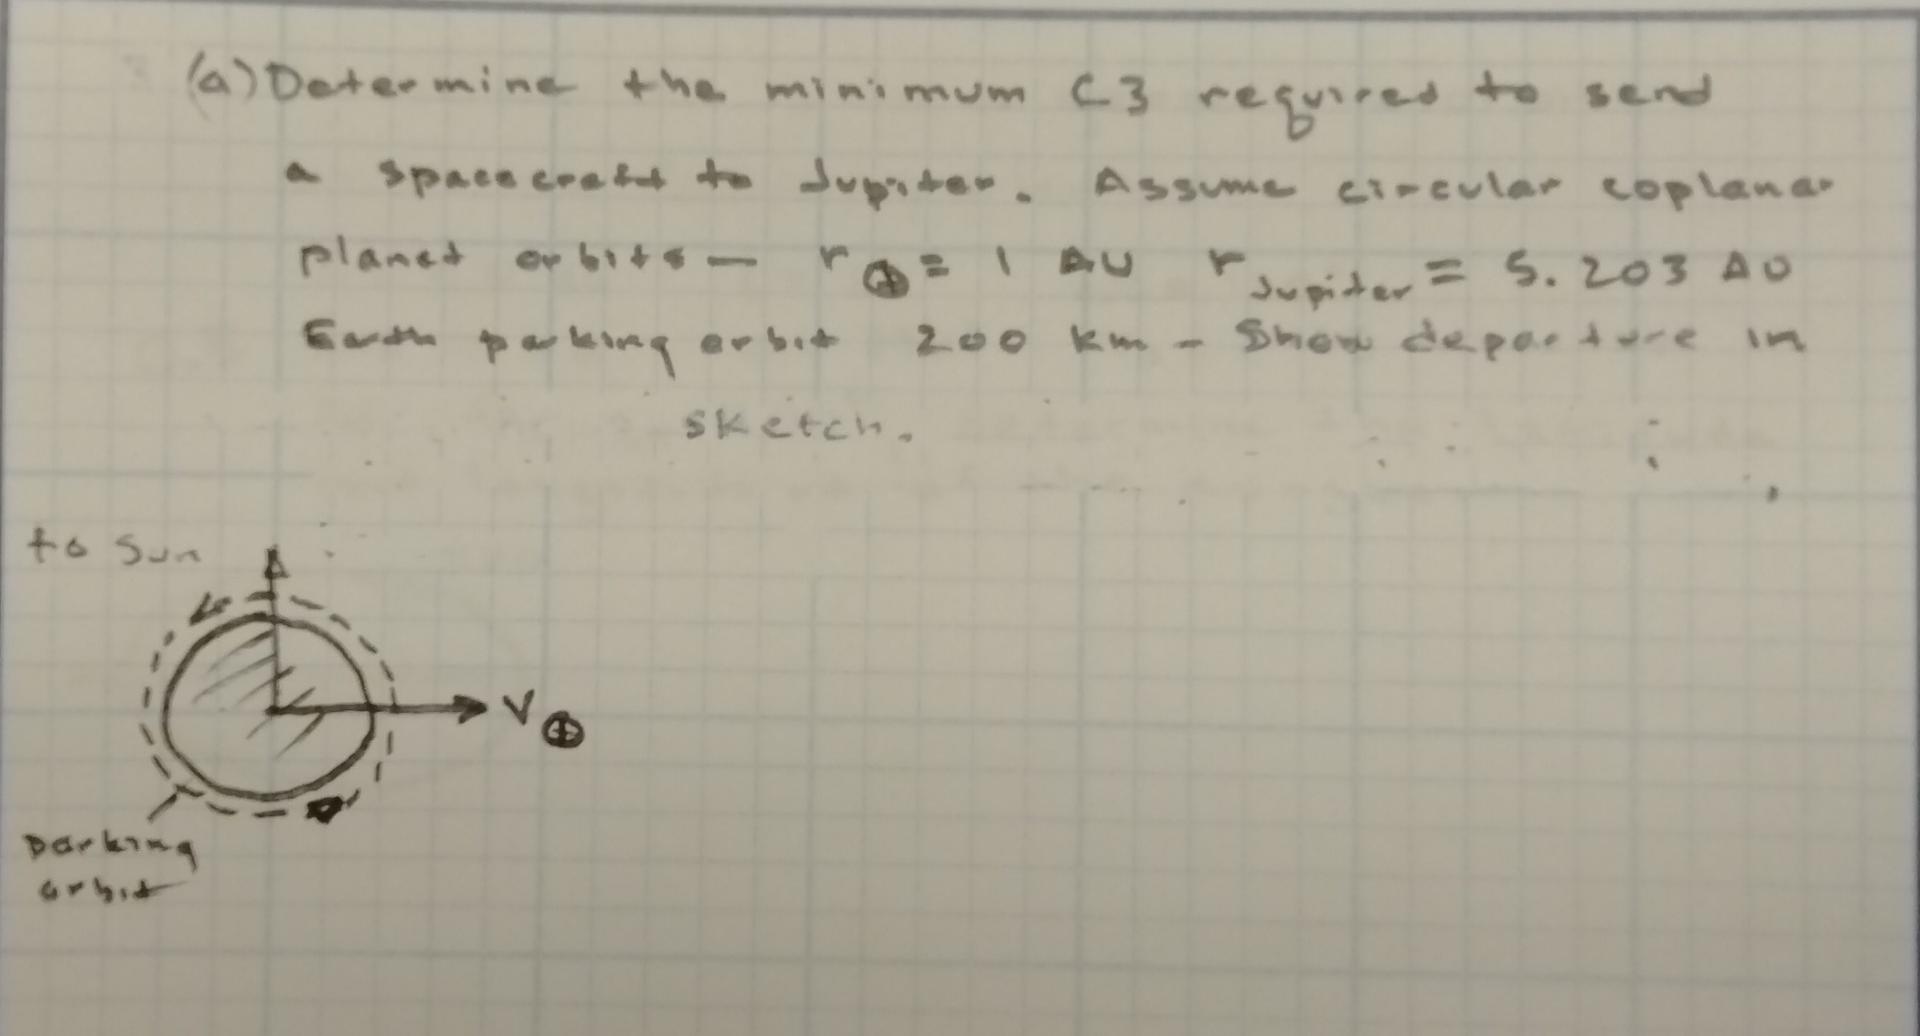 (a) Determine the minimum C3 required to send
a spacecraft to Jupiter. Assume circular coplanar
planet orbits — r⊕ = 1 AU r Jupiter = 5.203 AU
Earth parking orbit 200 km - Show departure in
sketch.
to Sun
V⊕
parking
orbit